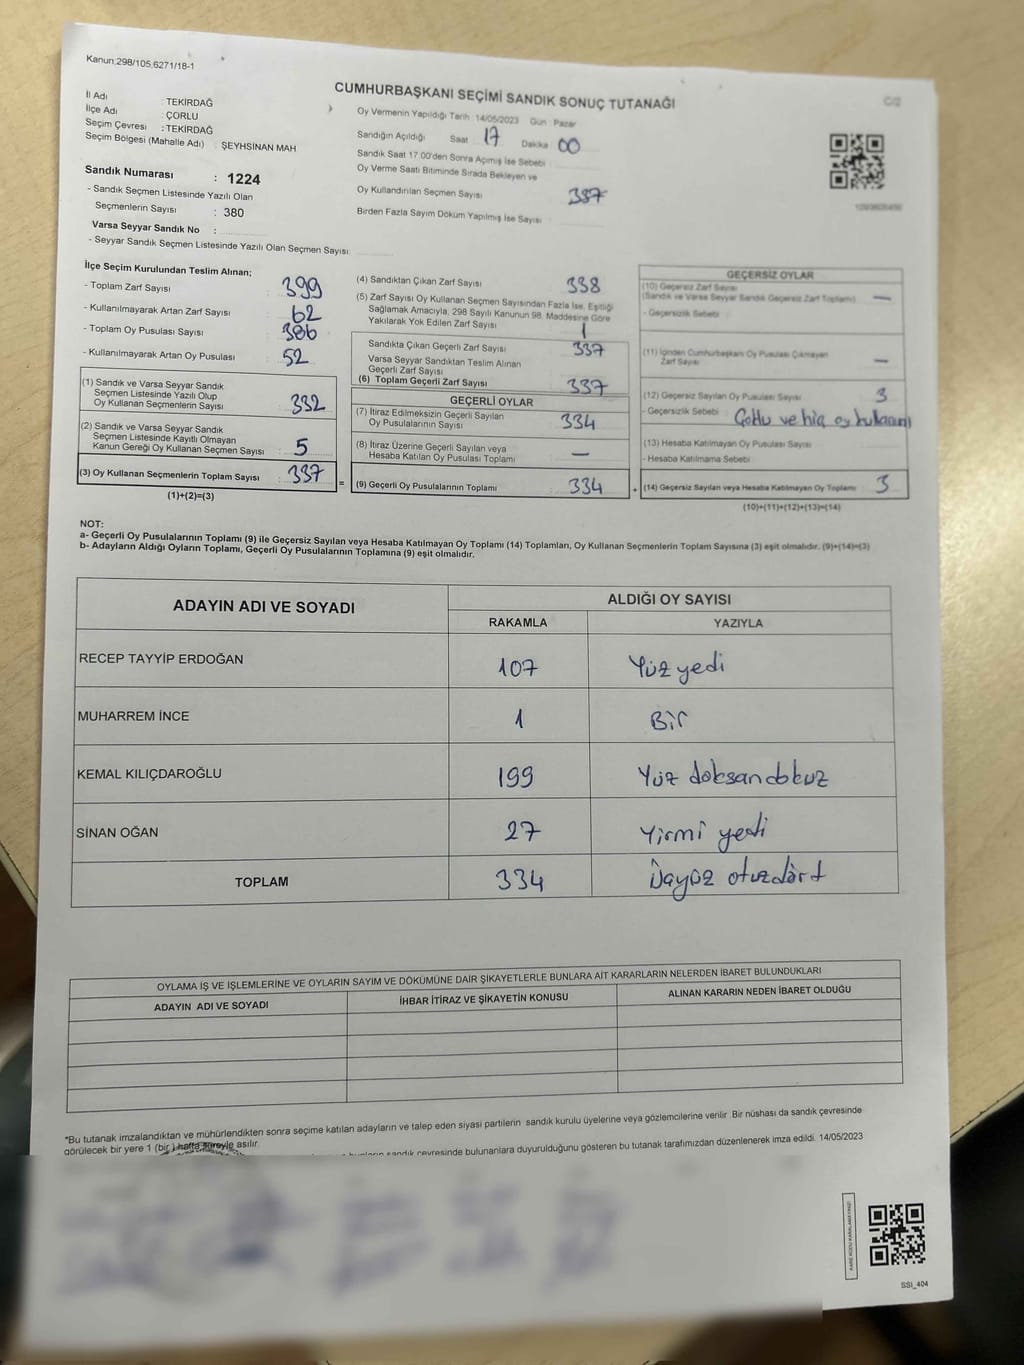 Kanun;298/105,6271/18-1
CUMHURBAŞKANI SEÇİMİ SANDIK SONUÇ TUTANAĞI
C/2
İl Adı : TEKİRDAĞ
İlçe Adı : ÇORLU
Seçim Çevresi : TEKİRDAĞ
Seçim Bölgesi (Mahalle Adı) : ŞEYHSİNAN MAH
Sandık Numarası : 1224
- Sandık Seçmen Listesinde Yazılı Olan
Seçmenlerin Sayısı : 380
Varsa Seyyar Sandık No :
- Seyyar Sandık Seçmen Listesinde Yazılı Olan Seçmen Sayısı:
Oy Vermenin Yapıldığı Tarih : 14/05/2023 Gün : Pazar
Sandığın Açıldığı Saat 17 Dakika 00
Sandık Saat 17.00'den Sonra Açılmış İse Sebebi :
Oy Verme Saati Bitiminde Sırada Bekleyen ve
Oy Kullandırılan Seçmen Sayısı 337
Birden Fazla Sayım Döküm Yapılmış İse Sayısı :
İlçe Seçim Kurulundan Teslim Alınan;
- Toplam Zarf Sayısı 399
- Kullanılmayarak Artan Zarf Sayısı 62
- Toplam Oy Pusulası Sayısı 386
- Kullanılmayarak Artan Oy Pusulası 52
(1) Sandık ve Varsa Seyyar Sandık
Seçmen Listesinde Yazılı Olup
Oy Kullanan Seçmenlerin Sayısı 332
(2) Sandık ve Varsa Seyyar Sandık
Seçmen Listesinde Kayıtlı Olmayan
Kanun Gereği Oy Kullanan Seçmen Sayısı 5
(3) Oy Kullanan Seçmenlerin Toplam Sayısı 337
(1)+(2)=(3)
(4) Sandıktan Çıkan Zarf Sayısı 338
(5) Zarf Sayısı Oy Kullanan Seçmen Sayısından Fazla İse, Eşitliği
Sağlamak Amacıyla, 298 Sayılı Kanunun 98. Maddesine Göre
Yakılarak Yok Edilen Zarf Sayısı 1
Sandıkta Çıkan Geçerli Zarf Sayısı 337
Varsa Seyyar Sandıktan Teslim Alınan
Geçerli Zarf Sayısı
(6) Toplam Geçerli Zarf Sayısı 337
GEÇERLİ OYLAR
(7) İtiraz Edilmeksizin Geçerli Sayılan
Oy Pusulalarının Sayısı 334
(8) İtiraz Üzerine Geçerli Sayılan veya
Hesaba Katılan Oy Pusulası Toplamı —
= (9) Geçerli Oy Pusulalarının Toplamı 334
GEÇERSİZ OYLAR
(10) Geçersiz Zarf Sayısı —
(Sandık ve Varsa Seyyar Sandık Geçersiz Zarf Toplamı)
- Geçersizlik Sebebi :
(11) İçinden Cumhurbaşkanı Oy Pusulası Çıkmayan
Zarf Sayısı —
(12) Geçersiz Sayılan Oy Pusulası Sayısı 3
- Geçersizlik Sebebi : ve hiç oy
(13) Hesaba Katılmayan Oy Pusulası Sayısı
- Hesaba Katılmama Sebebi
+ (14) Geçersiz Sayılan veya Hesaba Katılmayan Oy Toplamı 3
(10)+(11)+(12)+(13)=(14)
NOT:
a- Geçerli Oy Pusulalarının Toplamı (9) ile Geçersiz Sayılan veya Hesaba Katılmayan Oy Toplamı (14) Toplamları, Oy Kullanan Seçmenlerin Toplam Sayısına (3) eşit olmalıdır. (9)+(14)=(3)
b- Adayların Aldığı Oyların Toplamı, Geçerli Oy Pusulalarının Toplamına (9) eşit olmalıdır.
ADAYIN ADI VE SOYADI
ALDIĞI OY SAYISI
RAKAMLA YAZIYLA
RECEP TAYYİP ERDOĞAN 107 Yüz yedi
MUHARREM İNCE 1 Bir
KEMAL KILIÇDAROĞLU 199 Yüz doksandokuz
SİNAN OĞAN 27 Yirmi yedi
TOPLAM 334 Üçyüz otuzdört
OYLAMA İŞ VE İŞLEMLERİNE VE OYLARIN SAYIM VE DÖKÜMÜNE DAİR ŞİKAYETLERLE BUNLARA AİT KARARLARIN NELERDEN İBARET BULUNDUKLARI
ADAYIN ADI VE SOYADI İHBAR İTİRAZ VE ŞİKAYETİN KONUSU ALINAN KARARIN NEDEN İBARET OLDUĞU
*Bu tutanak imzalandıktan ve mühürlendikten sonra seçime katılan adayların ve talep eden siyasi partilerin sandık kurulu üyelerine veya gözlemcilerine verilir. Bir nüshası da sandık çevresinde
görülecek bir yere 1 (bir) hafta süreyle asılır.
sandık çevresinde bulunanlara duyurulduğunu gösteren bu tutanak tarafımızdan düzenlenerek imza edildi. 14/05/2023
SSI_404